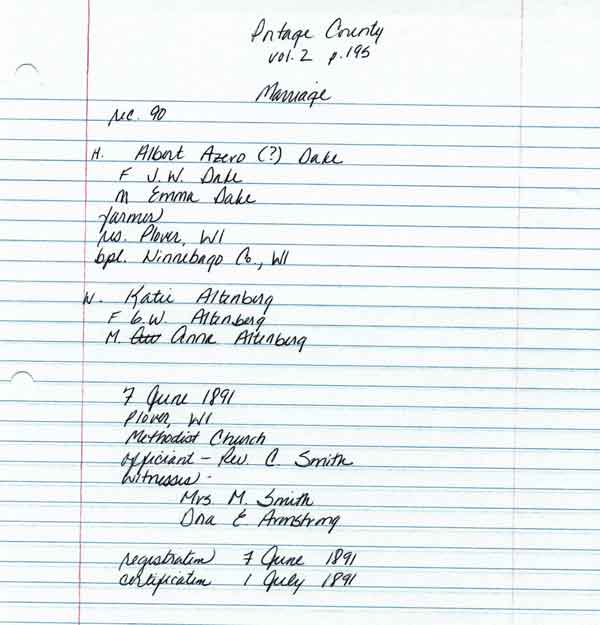 Portage County
vol. 2 p. 195
Marriage
rec. 90
H. Albert Azero (?) Dake
F J. W. Dake
M Emma Dake
farmer
res. Plover, WI
bpl. Winnebago Co., WI
W. Katie Altenberg
F G. W. Altenberg
M. Anna Altenberg
7 June 1891
Plover, WI
Methodist Church
officiant - Rev. C. Smith
witnesses -
Mrs M. Smith
Ona E Armstrong
registration 7 June 1891
certification 1 July 1891